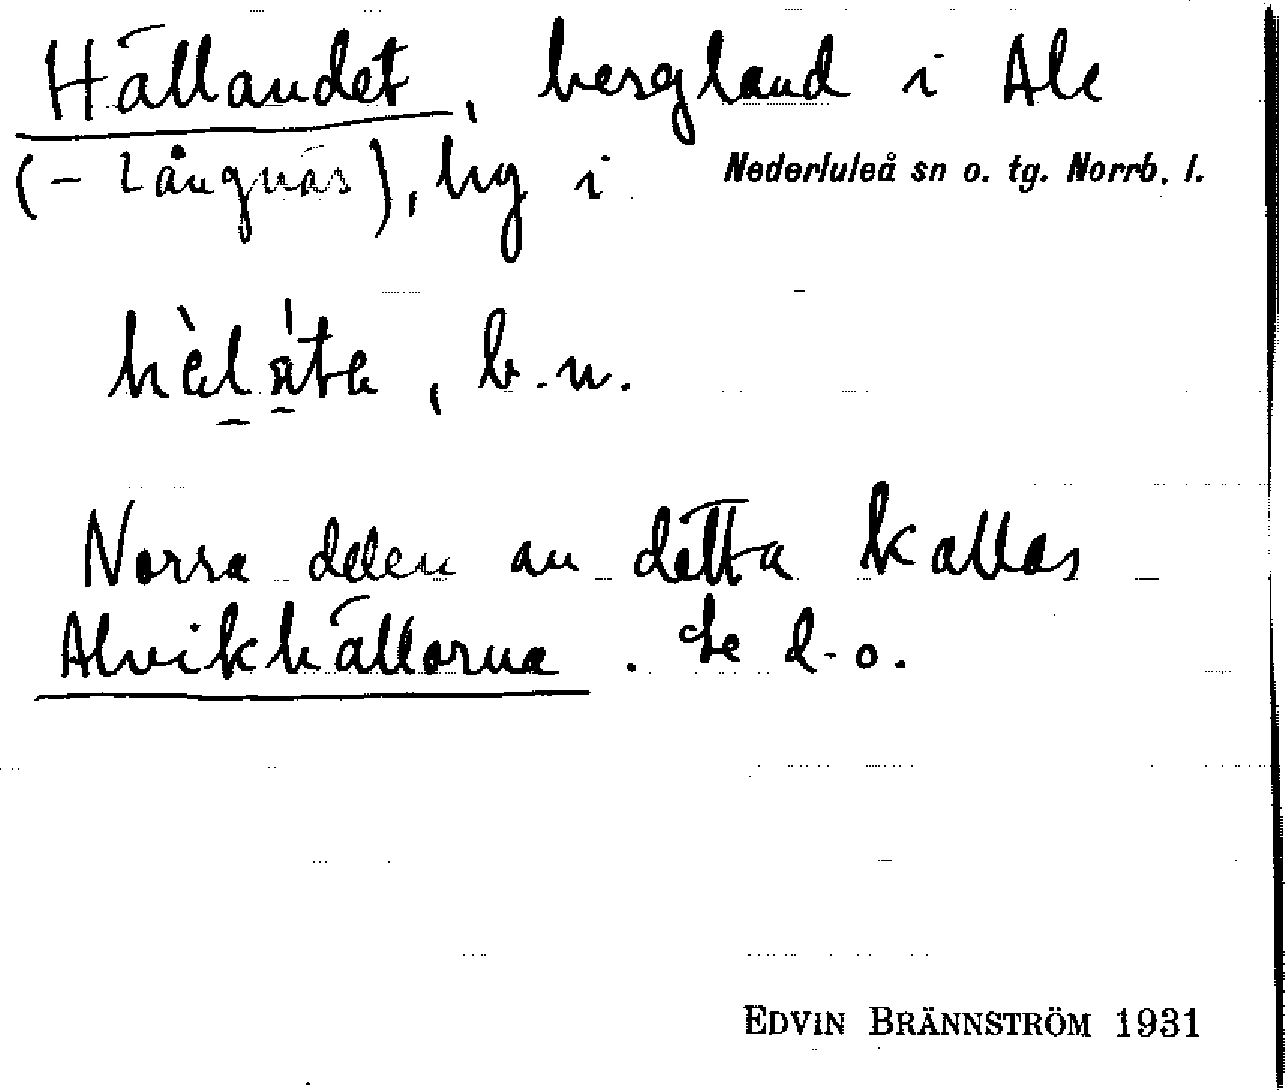 Hällandet, bergland i Ale
(- Långnäs), by i Nederluleå sn o. tg. Norrb. l.
b.n.
Norra delen av detta kallas
Alvikhällorna. Se d.o.
EDVIN BRÄNNSTRÖM 1931